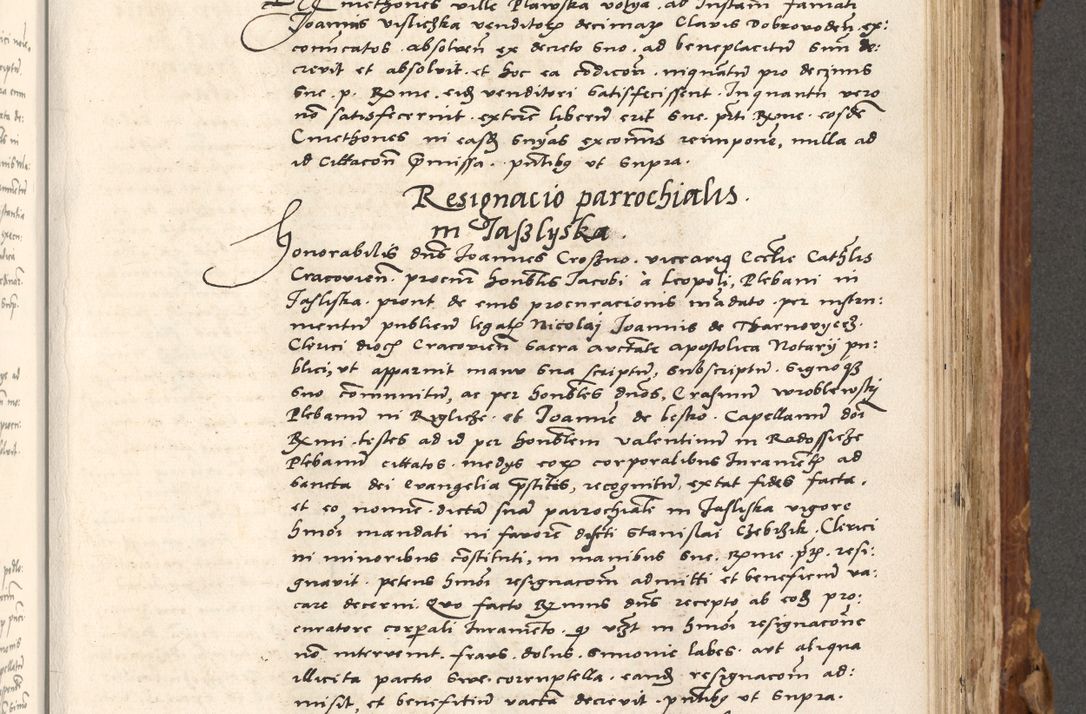 Cmethones ville Plawska volya. ad Instam famati
Joannis vislizka venditorꝭ decimarꝭ Clavis dobrovodeñ. ex:
comicatos. absolveñ ex decreto suo. ad beneplacitũ suũ de:
crevit et absolvit. et hoc ea codicoñ. inquantũ pro decimis
sue. p. Rx͠me. eid͠ venditori satisfecissent. Inquantũ vero
nõ satisfecerint. extũc liberũ erit sue. p͠rti Rx͠me. eosd͠e
Cmethones in easd͠ sn͠ias excom͠nis reimpone͠, nulla ad
id cittacoñ p͠missa. pn͠tibꝫ vt supra.
Resignacio parrochialis.
in Jaßlyska.
Honorabilis dn͠s Joannes Croßno. vicariꝫ Eccl͠ie Cath͠lis
Cracovieñ. procur͠ hon͠blis Jacobi à leopoli, Plebani in
Jasliska. prout de eius procuracionis mãdato. per instru:
mentũ publicũ legal͠r Nicolaj Joannis de Tharnovycz.
Clerici dioc͠ Cracovieñ sacra auct͠ate apostolica Notarij pu:
blici, vt apparuit manu sua scriptũ, subscriptũ. signoqꝫ
suo com͠unitũ, ac per hon͠bles dn͠os, Erasmũ wroblewskj
Plebanũ in Rzgliche. et Joanne͠ de lestro. Capellanũ do͠i
Rx͠mi. testes ad id per hon͠blem valentinũ in Radossicze
Plebanũ cittatos. medijs eorꝭ corporalibus Iuramẽtꝭ ad
sancta dei evangelia p͠stitis, recognitũ, extat fides facta.
et eo, nomine͠. dictã suã parrochiale͠ in Jasliska vigore
hm͠oi mandati in favore͠ dis͠cti Stanislai Czebizik, Clerici
in minoribus co͠stituti, in manibus sue. Rx͠me. p͠rꝭ. resi:
gnavit. petens hm͠oi resignaco͠m admitti et beneficiũ va:
care decerni. Quo facto Rx͠mus dn͠s recepto ab eod͠ pro:
curatore corp͠ali Iurame͠to. ꝙ vz͠t in hm͠oi resignaco͠ne
nõ intervenit. fraus. dolus. simonie labes. aut aliqua
illicita pactio sive corruptella. eand͠ resignaco͠m ad:
misit, et beneficiũ vacãa decrevit. pn͠tibꝫ vt supra.